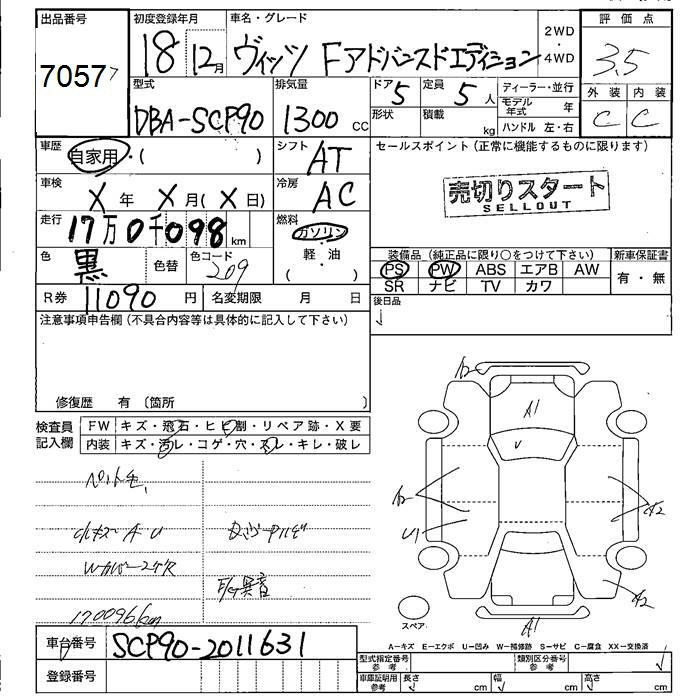 出品番号 初度登録年月 車名・グレード 2WD 評価点
7057 18年12月 ヴィッツ FアドバンスドエディションN 4WD 3.5
型式 排気量 ドア 定員 ディーラー・並行 外装 内装
DBA-SCP90 1300 CC 5 5人 モデル年式 年 C C
形状 積載 kg ハンドル 左・右
車歴 自家用・( ) シフト AT セールスポイント(正常に機能するものに限ります)
車検 X年 X月(X日) 冷房 AC 売切りスタート
SELLOUT
走行 17万0千098km 燃料 ガソリン
軽・油
( )
装備品(純正品に限り○をつけて下さい) 新車保証書
色 黒 色替 色コード 209 PS PW ABS エアB AW 有・無
SR ナビ TV カワ
R券 11090円 名変期限 月 日 後日品
注意事項申告欄(不具合内容等は具体的に記入して下さい)
修復歴 有〔箇所 〕
検査員記入欄 FW キズ・飛石・ヒビ割・リペア跡・X要
内装 キズ・汚レ・コゲ・穴・スレ・キレ・破レ
A2
A1
A2
U1
A2
A2
A1
スペア
Wカバー2ケR
E/G異音
170096km
A-キズ E-エクボ U-凹み W-補修跡 S-サビ C-腐食 XX-交換済
車台番号 SCP90-2011631
型式指定番号 参考 類別区分番号 参考
登録番号 車庫証明用 参考 長さ cm 幅 cm 高さ cm